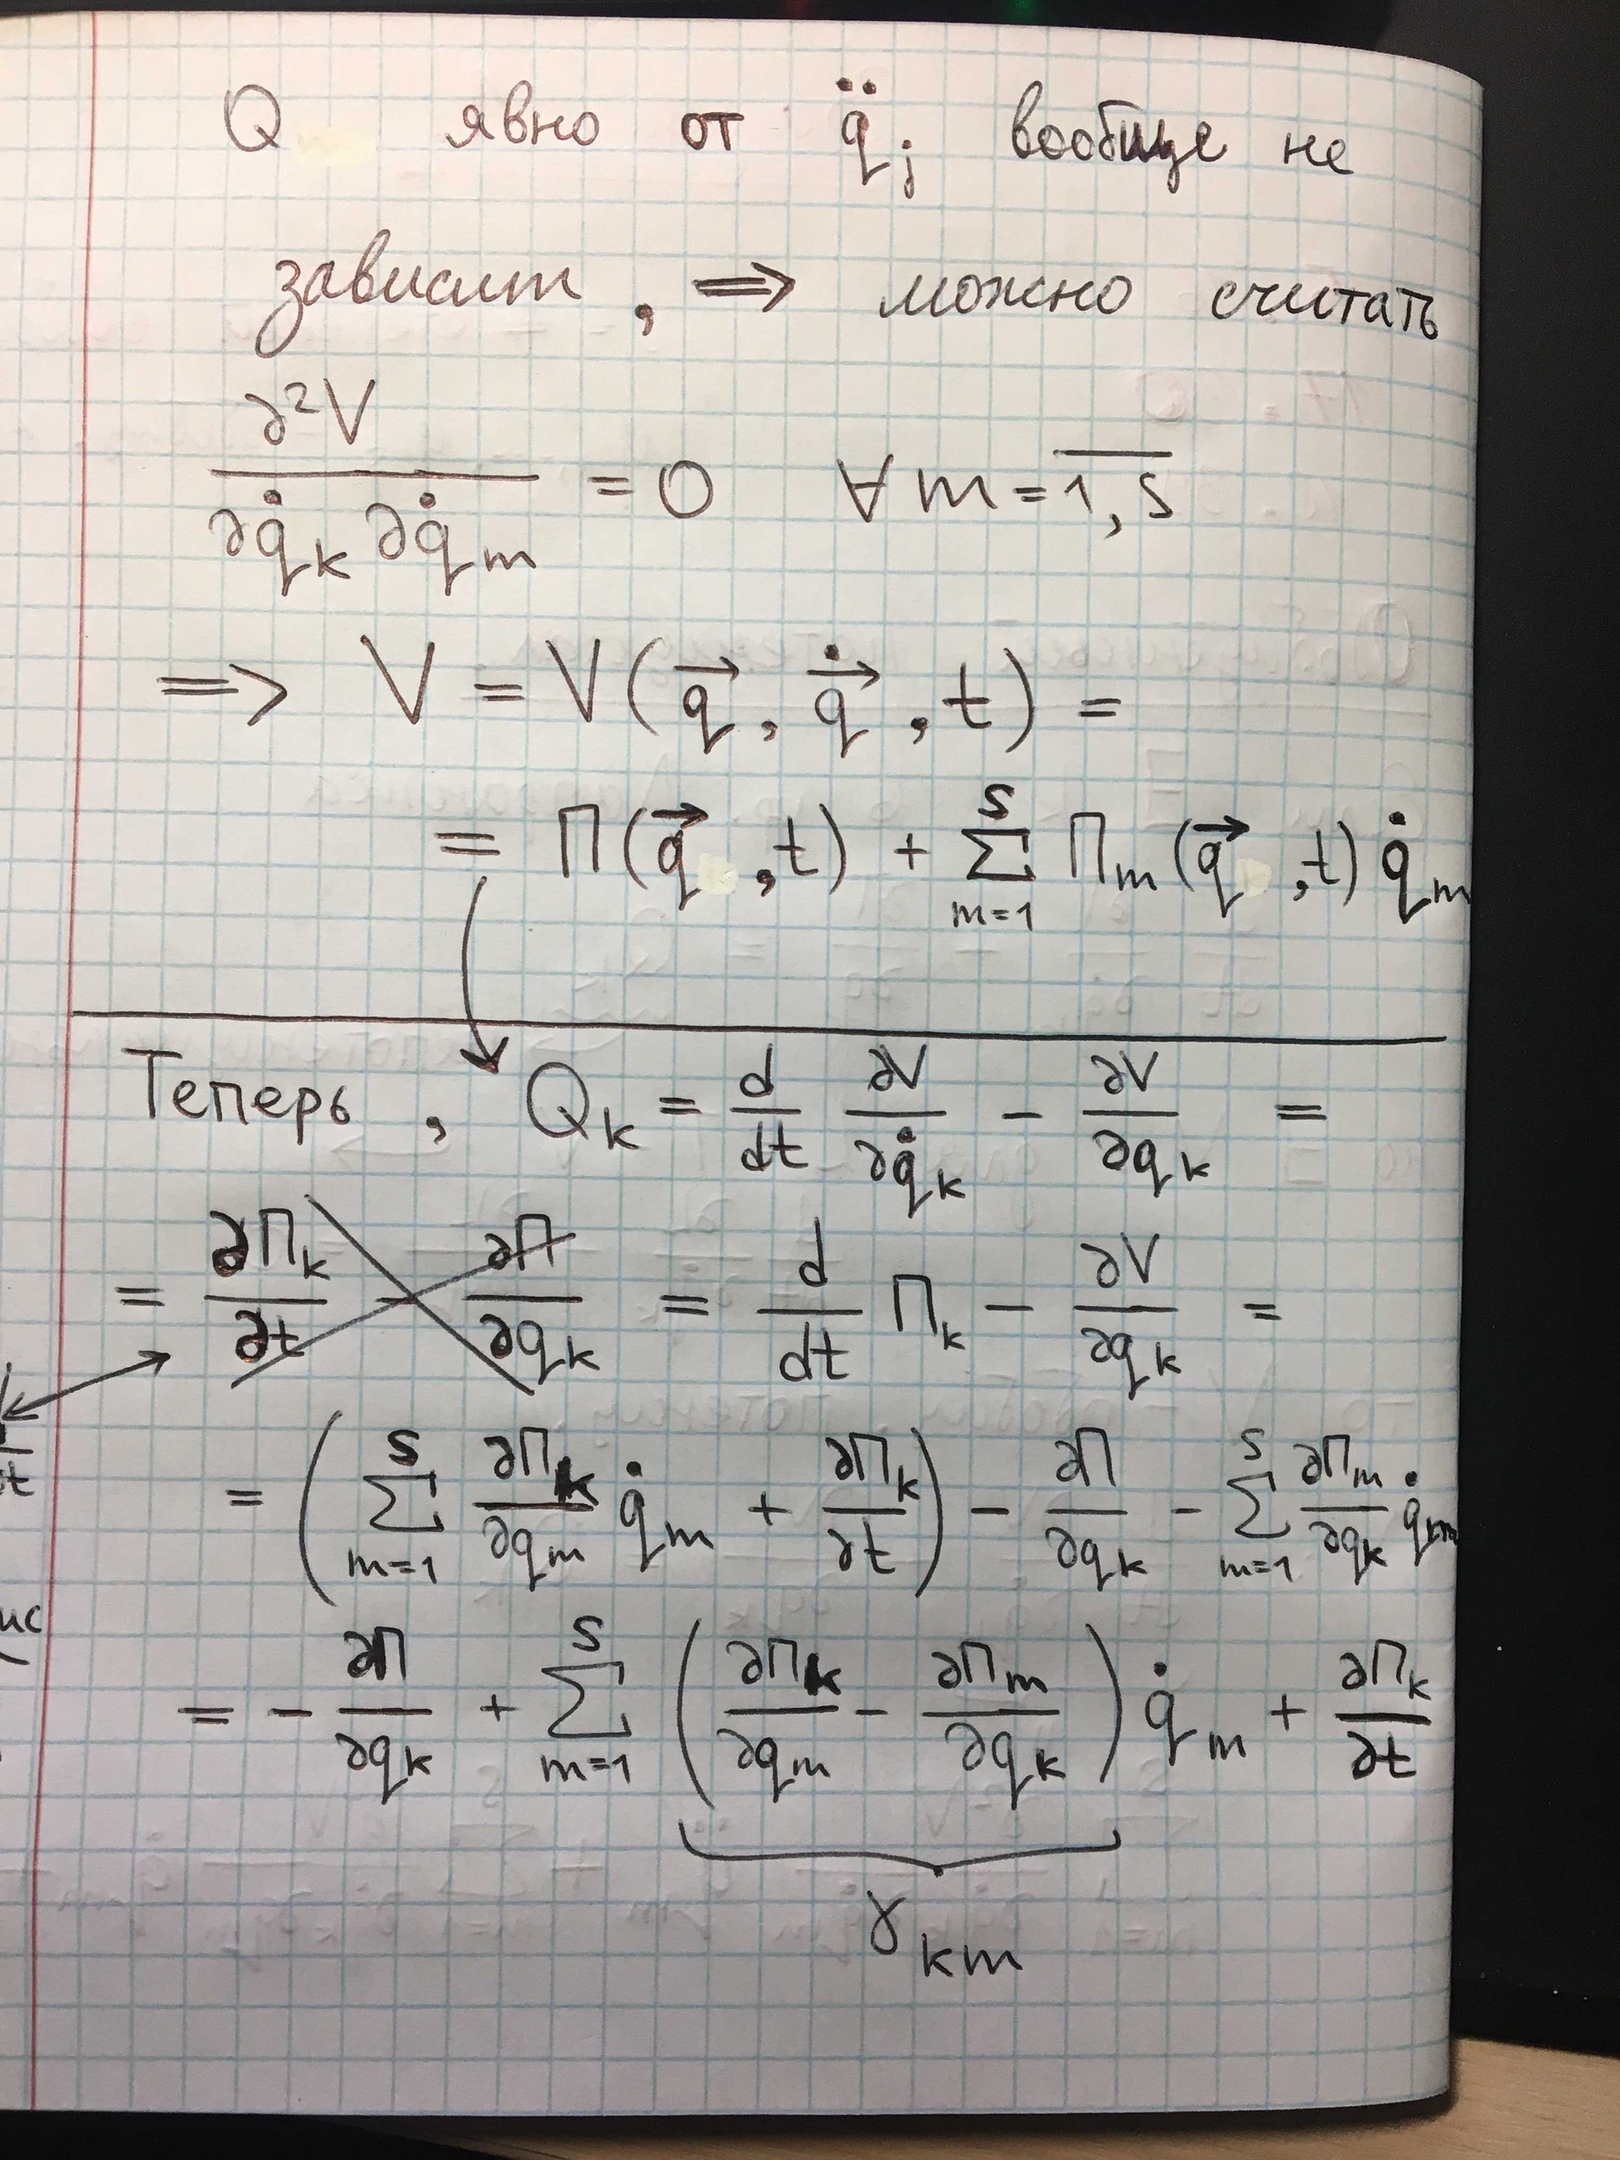 Q явно от q̈ⱼ вообще не
зависит, ⟹ можно считать
∂²V / ∂q̇ₖ ∂q̇ₘ = 0 ∀ m = 1,s̅
⟹ V = V(q⃗, q⃗̇, t) =
= П(q⃗, t) + ∑ₘ₌₁ˢ Пₘ(q⃗, t) q̇ₘ
Теперь, Qₖ = d/dt ∂V/∂q̇ₖ − ∂V/∂qₖ =
= ∂Пₖ/∂t − ∂П/∂qₖ = d/dt Пₖ − ∂V/∂qₖ =
= (∑ₘ₌₁ˢ ∂Пₖ/∂qₘ q̇ₘ + ∂Пₖ/∂t) − ∂П/∂qₖ − ∑ₘ₌₁ˢ ∂Пₘ/∂qₖ q̇ₘ
= − ∂П/∂qₖ + ∑ₘ₌₁ˢ (∂Пₖ/∂qₘ − ∂Пₘ/∂qₖ) q̇ₘ + ∂Пₖ/∂t
γₖₘ